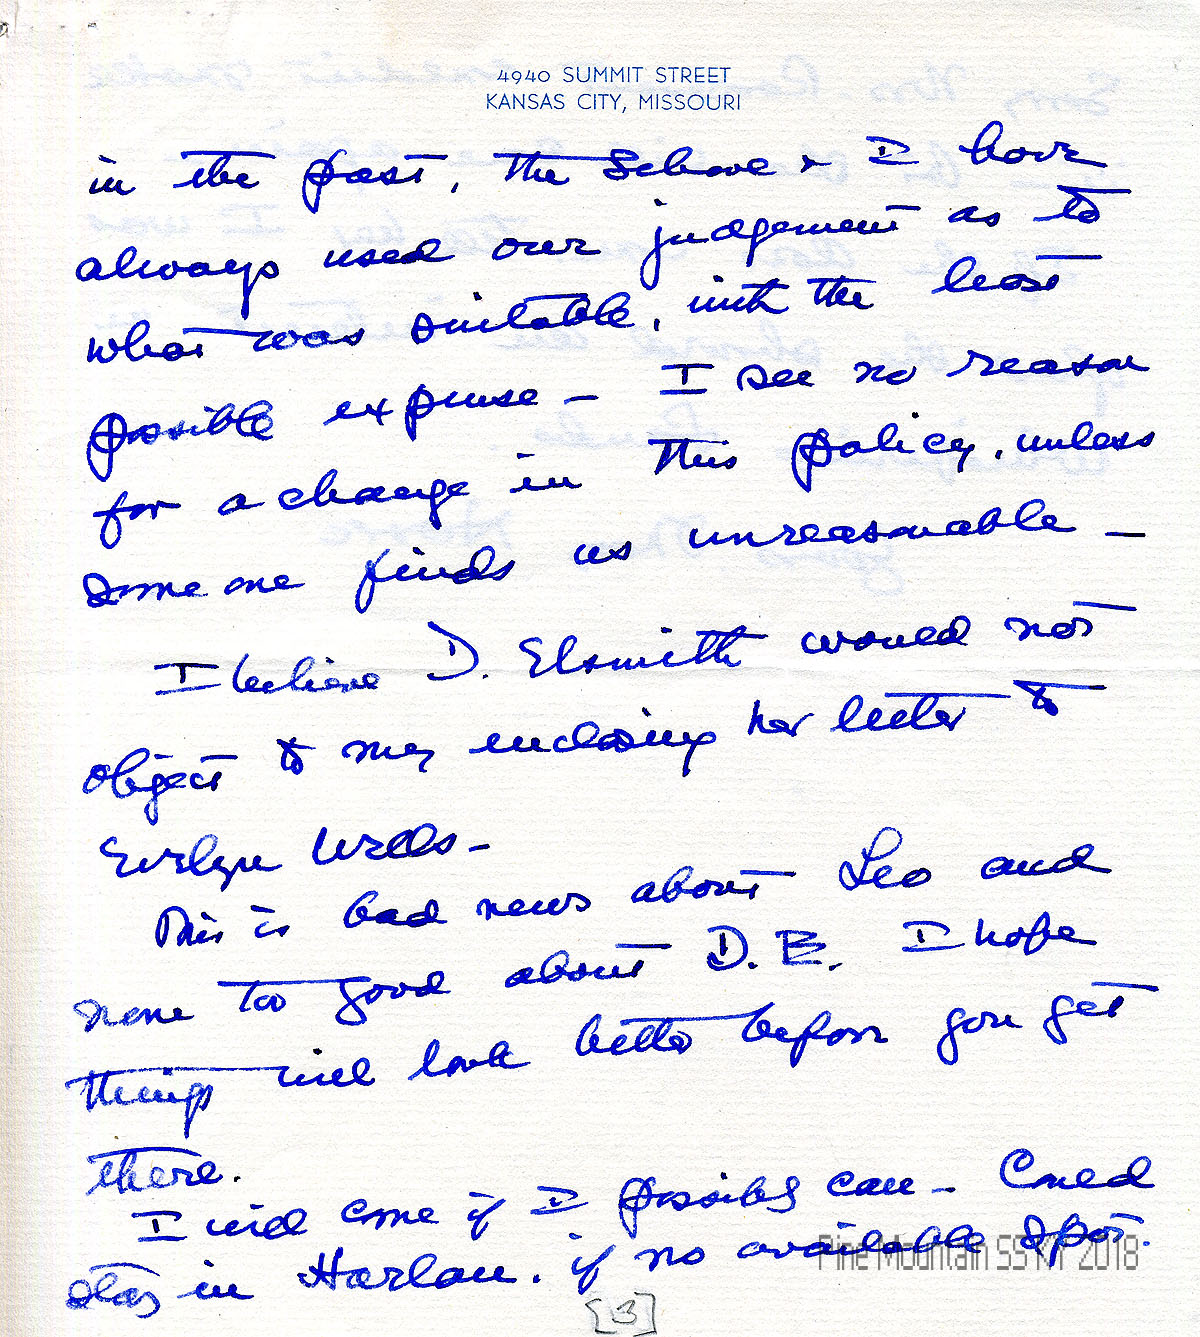 4940 SUMMIT STREET
KANSAS CITY, MISSOURI
in the past, the School & I have
always used our judgement as to
what was suitable, with the least
possible expense – I see no reason
for a change in this policy, unless
some one finds us unreasonable –
I believe D. Elsmith would not
object to my enclosing her letter to
Evelyn Wells –
This is bad news about Leo and
none too good about D.E. I hope
things will look better before you get
there.
I will come if I possibly can – Could
stay in Harlan, if no available spot.
Pine Mountain SS KY 2018
[3]